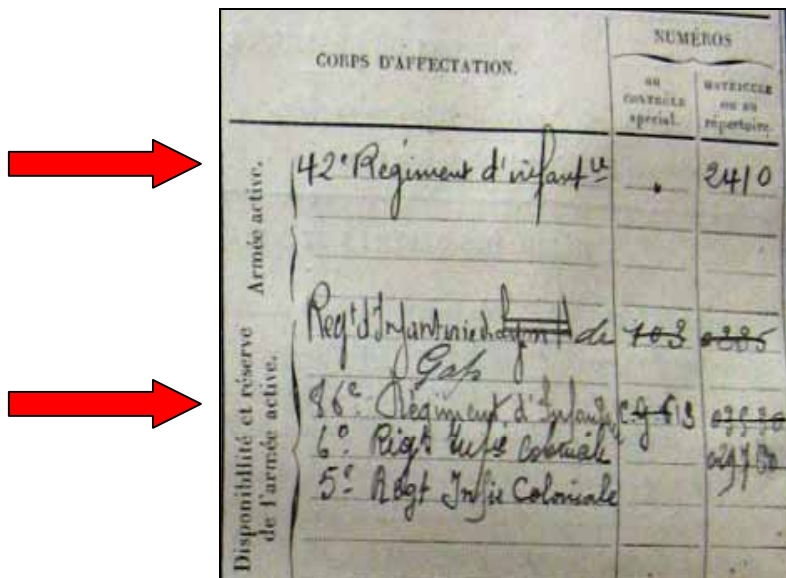 CORPS D'AFFECTATION.
NUMÉROS
au CONTRÔLE spécial.
MATRICULE ou au répertoire.
Armée active.
42e Régiment d'infantie 2410
Disponibilité et réserve de l'armée active.
Regt d'Infanterie de 103
Gap
86e Régiment d'Infante
6e Régt Infie Coloniale
5e Regt Infie Coloniale